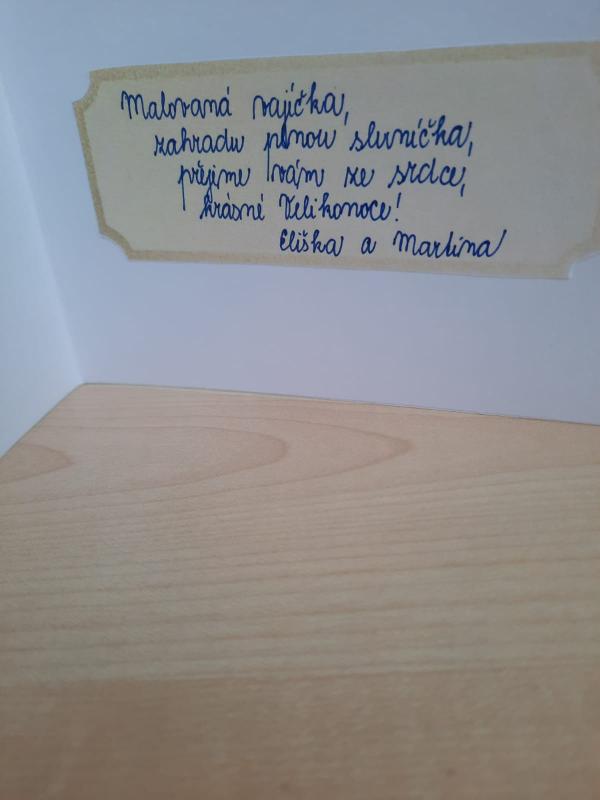 Malovaná vajíčka,
zahradu plnou sluníčka,
přejeme vám ze srdce,
krásné Velikonoce!
Eliška a Martina